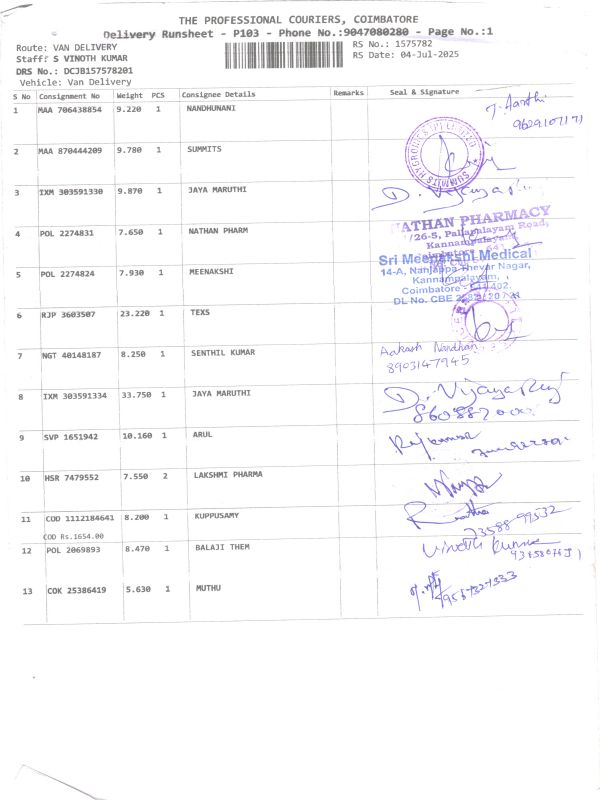 THE PROFESSIONAL COURIERS, COIMBATORE
Delivery Runsheet - P103 - Phone No.:9047080280 - Page No.:1
Route: VAN DELIVERY
Staff: S VINOTH KUMAR
DRS No.: DCJB157578201
Vehicle: Van Delivery
RS No.: 1575782
RS Date: 04-Jul-2025
S No Consignment No Weight PCS Consignee Details Remarks Seal & Signature
1 MAA 706438854 9.220 1 NANDHUNANI
9629107171
2 MAA 870444209 9.780 1 SUMMITS
SUMMITS HYGRONICS
3 IXM 303591330 9.870 1 JAYA MARUTHI
4 POL 2274831 7.650 1 NATHAN PHARM
NATHAN PHARMACY
/26-5, Pallapalayam Road,
Kannampalayam
5 POL 2274824 7.930 1 MEENAKSHI
Sri Meenakshi Medical
14-A, Nanjappa Thevar Nagar,
Kannampalayam,
Coimbatore - 641 402.
DL No. CBE
6 RJP 3603507 23.220 1 TEXS
7 NGT 40148187 8.250 1 SENTHIL KUMAR
Aakash Nandhan
8903147945
8 IXM 303591334 33.750 1 JAYA MARUTHI
D. Vijayaraj
9 SVP 1651942 10.160 1 ARUL
Rajkumar
10 HSR 7479552 7.550 2 LAKSHMI PHARMA
11 COD 1112184641 8.200 1 KUPPUSAMY
COD Rs.1654.00
73588 99532
12 POL 2069893 8.470 1 BALAJI THEM
Vinoth Kumar
13 COK 25386419 5.630 1 MUTHU